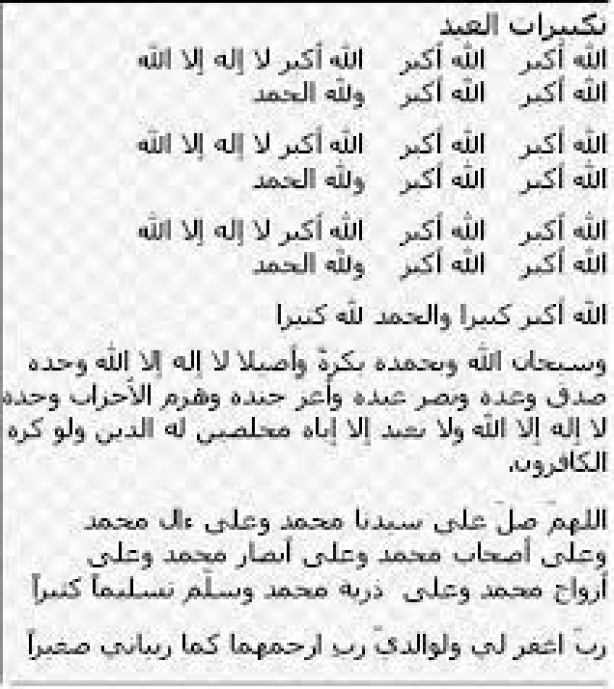 تكبيرات العيد
الله أكبر الله أكبر الله أكبر لا إله إلا الله
الله أكبر الله أكبر ولله الحمد
الله أكبر الله أكبر الله أكبر لا إله إلا الله
الله أكبر الله أكبر ولله الحمد
الله أكبر الله أكبر الله أكبر لا إله إلا الله
الله أكبر الله أكبر ولله الحمد
الله أكبر كبيرا والحمد لله كثيرا
وسبحان الله وبحمده بكرة وأصيلا لا إله إلا الله وحده
صدق وعده ونصر عبده وأعز جنده وهزم الأحزاب وحده
لا إله إلا الله ولا نعبد إلا إياه مخلصين له الدين ولو كره
الكافرون.
اللهمّ صلّ على سيدنا محمد وعلى ءال محمد
وعلى أصحاب محمد وعلى أنصار محمد وعلى
أزواج محمد وعلى ذرية محمد وسلّم تسليماً كثيراً
ربّ اغفر لي ولوالديّ رب ارحمهما كما ربياني صغيراً